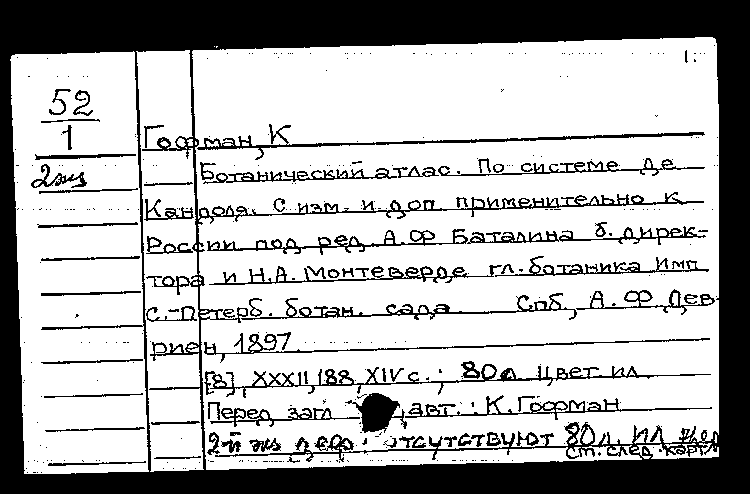 1.
52
1
2 экз
Гофман, К
Ботанический атлас. По системе Де
Кандоля. С изм. и доп применительно к
России под ред А.Ф Баталина б. дирек-
тора и Н.А. Монтеверде гл. ботаника Имп
С.-Петерб. ботан. сада Спб, А. Ф Дев
риен, 1897.
[8], XXXII, 188, XIV с.; 80 л цвет ил
Перед загл авт.: К. Гофман
2-й экз отсутствуют 80 л. ил
См. след. карт.